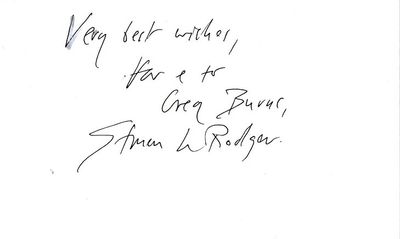 Very best wishes,
for e to
Greg Burns,
Simon W Rodger.